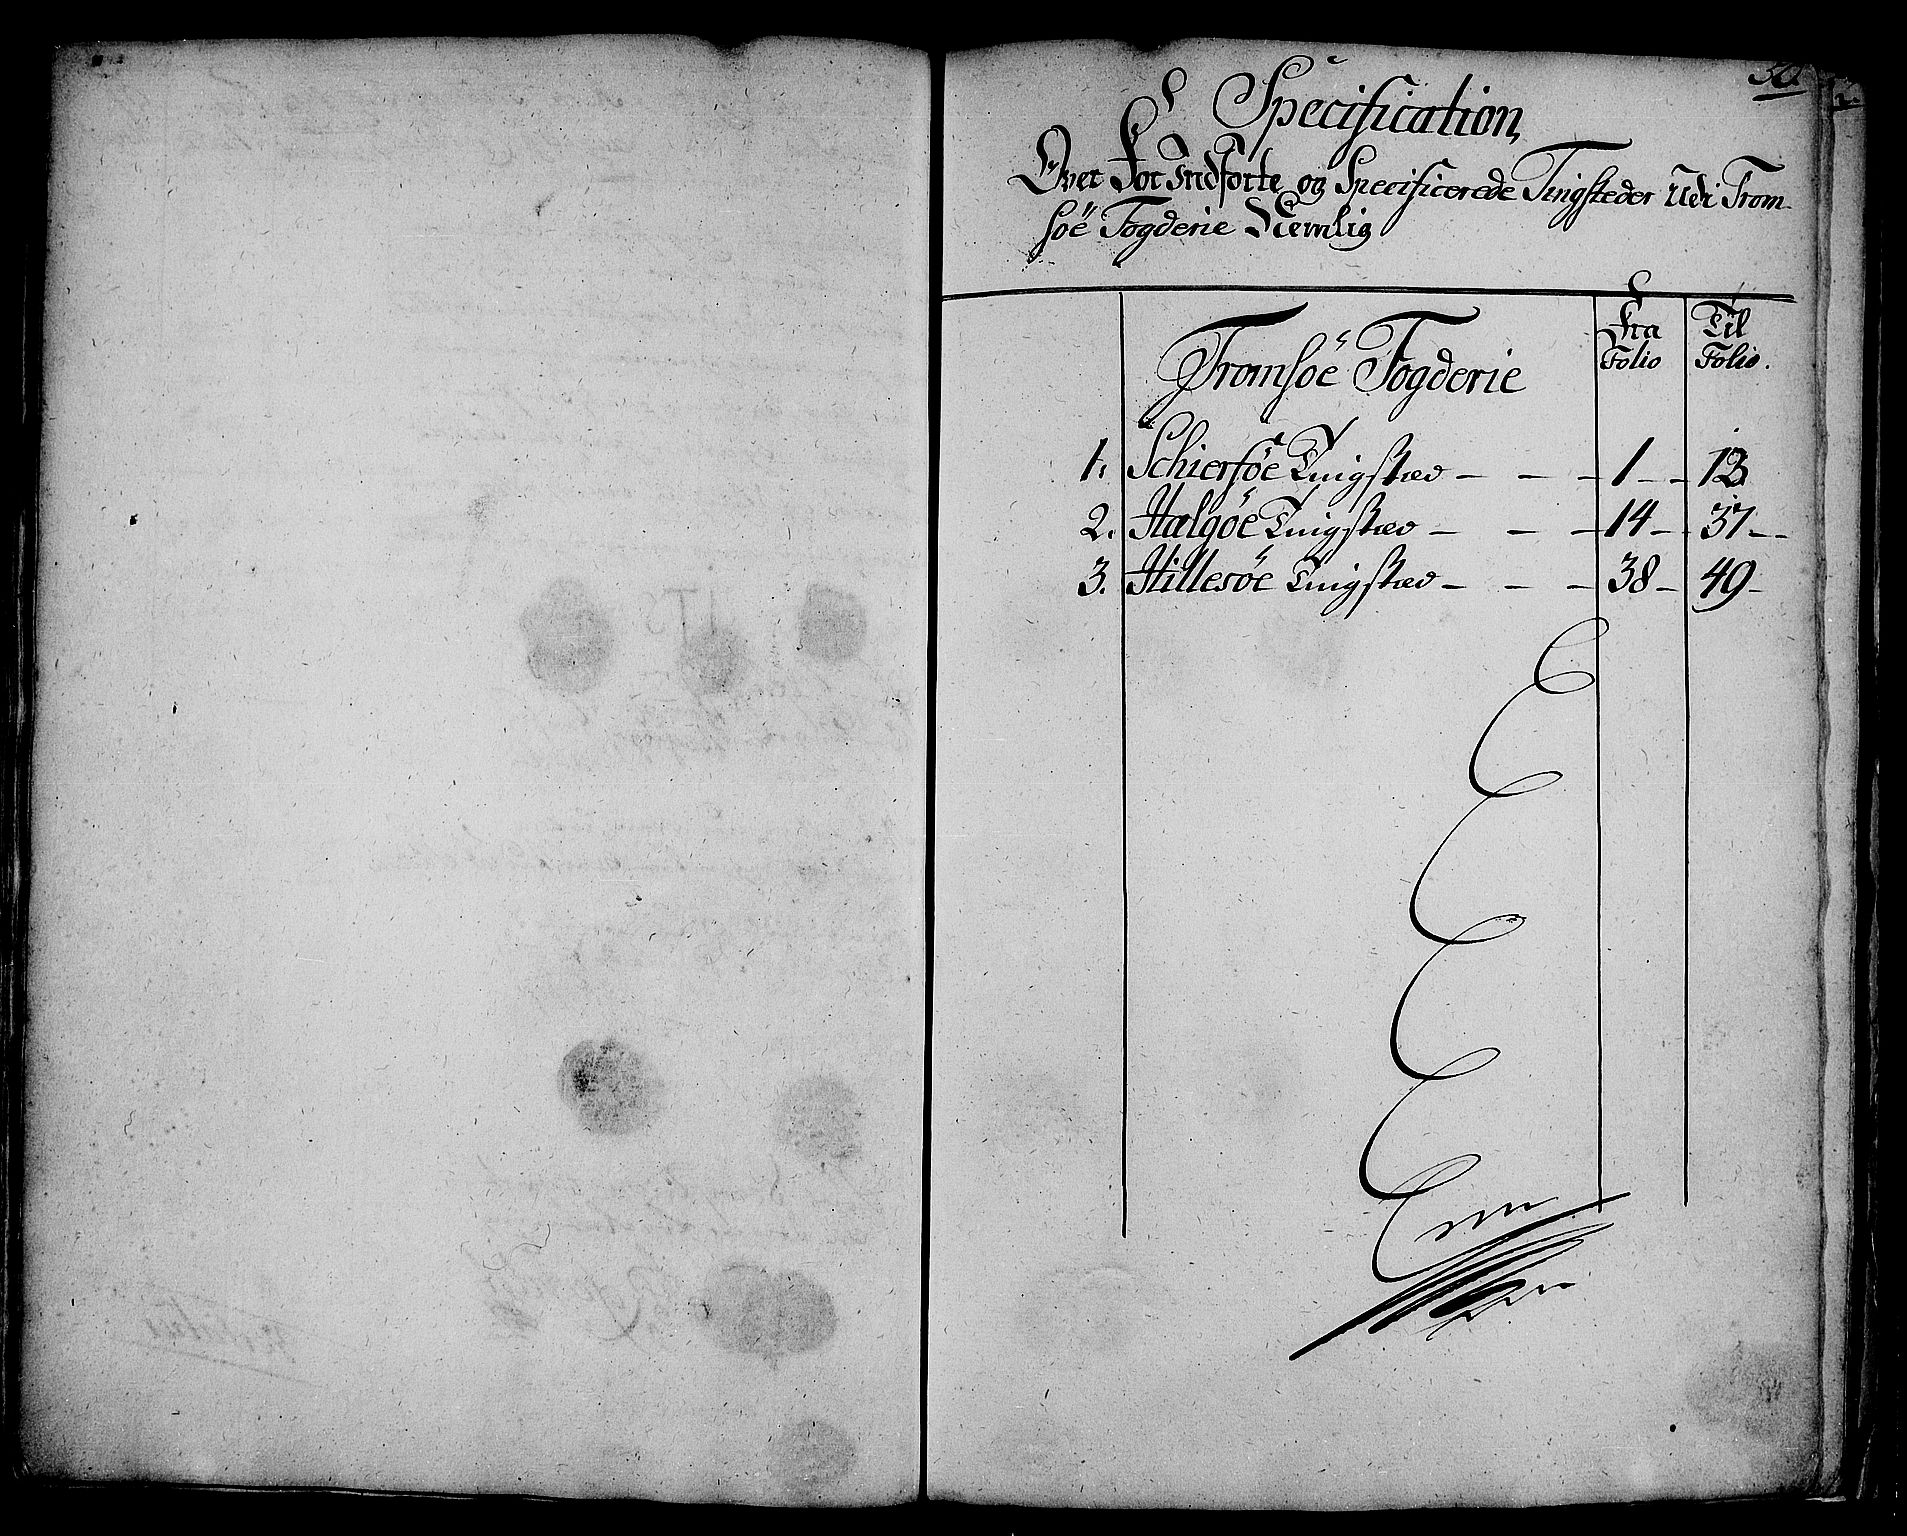 Specification,
Over For Indførte og Specificerede Tingsteder Udi Trom-
söe Fogderie Nemlig
Tromsöe Fogderie
Fra Folio
Til Folio.
1. Schiersöe Tingstæd - - - 1 - - 13
2. Hælgöe Tingstæd - - - 14 - 37 - -
3. Hillesöe Tingstæd - - - 38 - 49 -